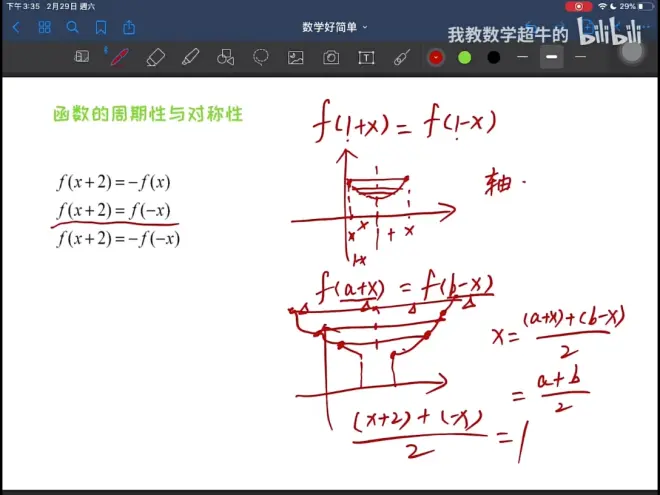 下午 3:35 2月29日 週六
29%
数学好简单
我教数学超牛的 bilibili
函数的周期性与对称性
f(1+x) = f(1-x)
f(x+2)=-f(x)
f(x+2)=f(-x)
f(x+2)=-f(-x)
轴
f(a+x) = f(b-x)
x = \frac{(a+x)+(b-x)}{2}
= \frac{a+b}{2}
\frac{(x+2)+(-x)}{2} = 1